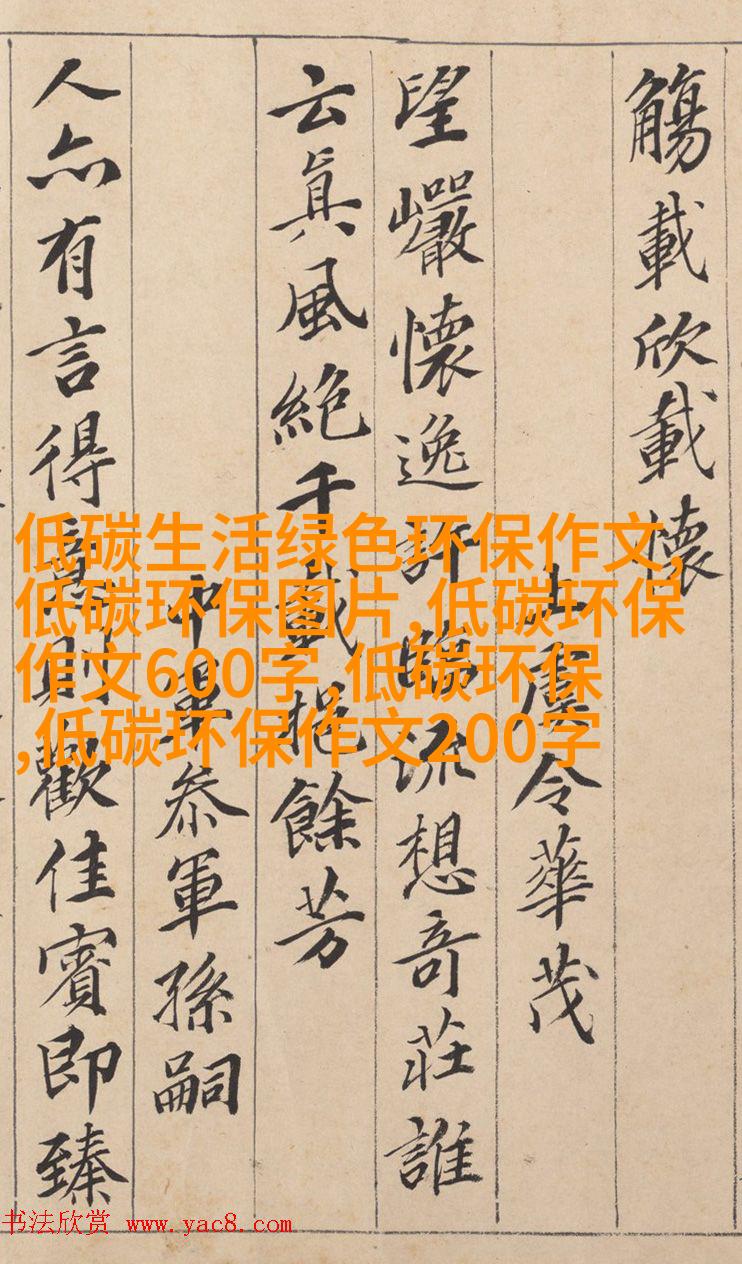 觴載欣載懷
上虞令華茂
望巖懷逸許臨流想奇莊誰
云眞風絕千載挹餘芳
中軍叅軍孫嗣
人亦有言得意則歡佳賓即臻
低碳生活绿色环保作文,
低碳环保图片,低碳环保
作文600字,低碳环保
,低碳环保作文200字
书法欣赏 www.yac8.com